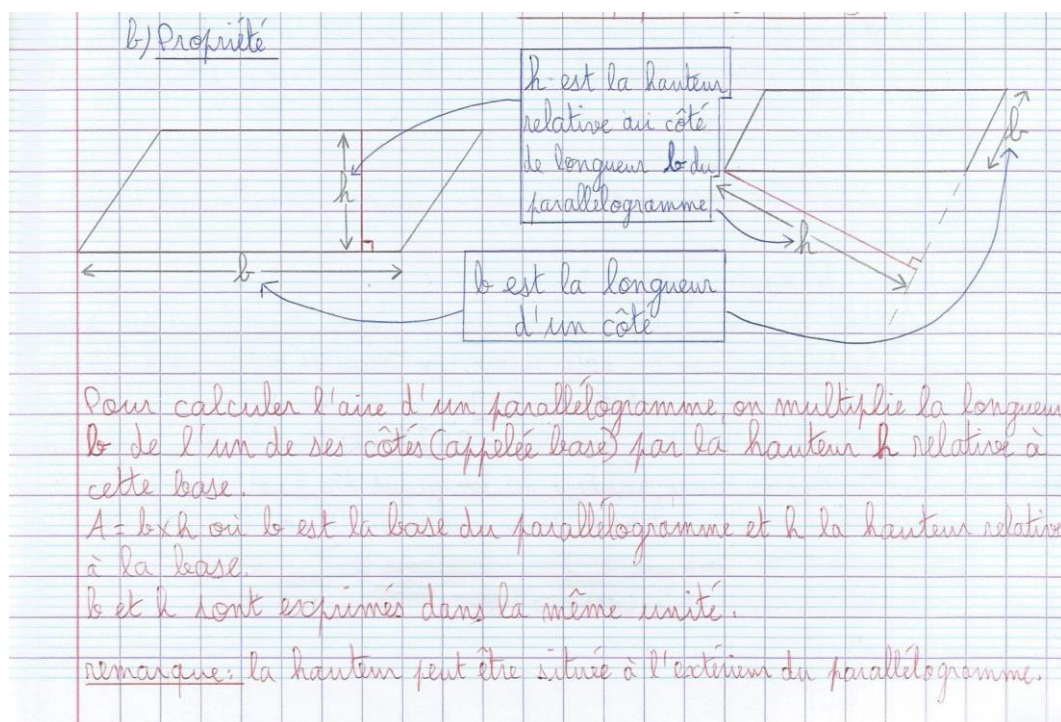 b) Propriété
h est la hauteur
relative au côté
de longueur b du
parallélogramme
h
b
b
h
b est la longueur
d'un côté
Pour calculer l'aire d'un parallélogramme, on multiplie la longueur
b de l'un de ses côtés (appelée base) par la hauteur h relative à
cette base.
A = b x h où b est la base du parallélogramme et h la hauteur relative
à la base.
b et h sont exprimés dans la même unité.
remarque : la hauteur peut être située à l'extérieur du parallélogramme.